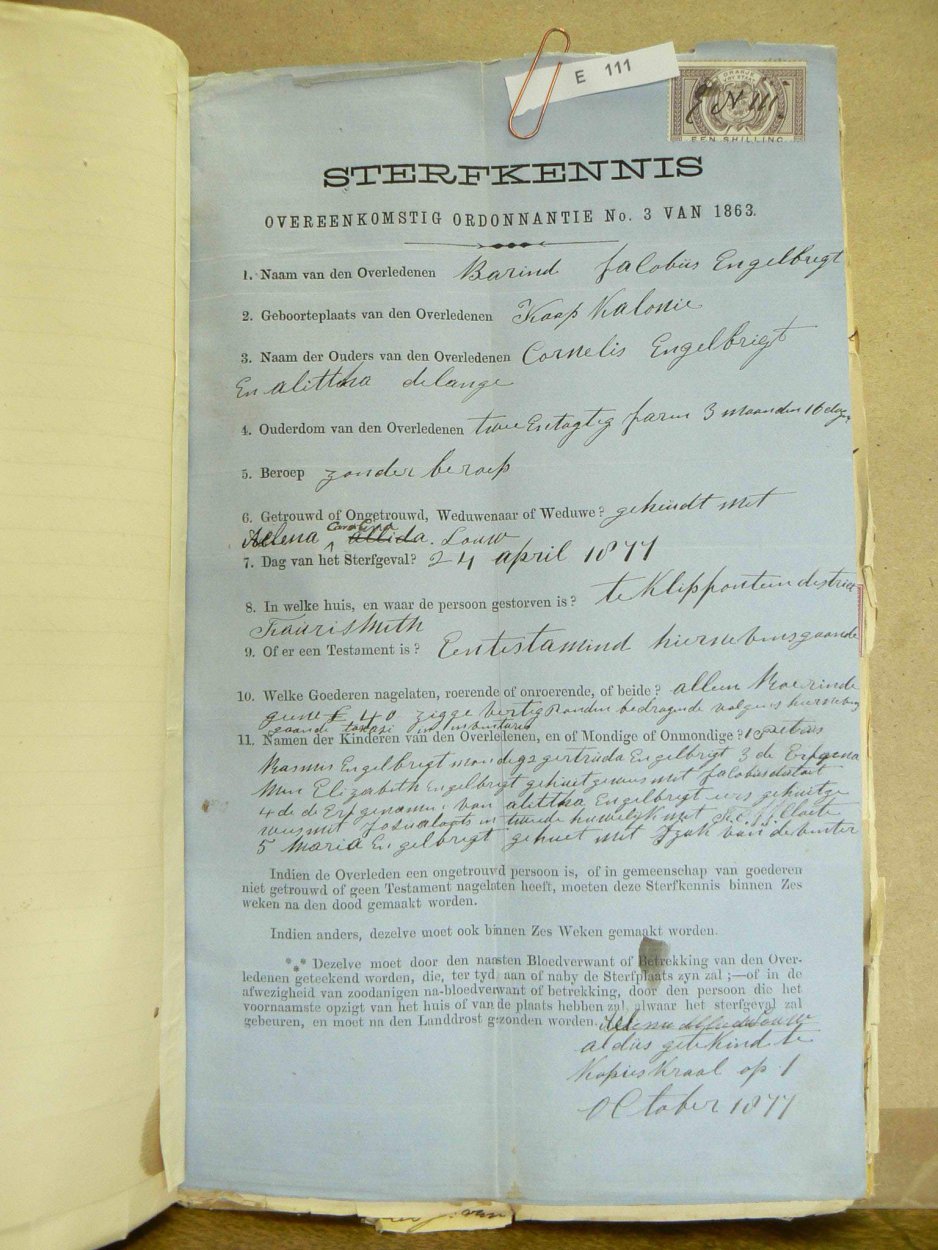 E 111
ORANJE
VRY STAAT
E No 111.
EEN SHILLING
STERFKENNIS
OVEREENKOMSTIG ORDONNANTIE No. 3 VAN 1863.
1. Naam van den Overledenen Barind Jacobus Engelbregt
2. Geboorteplaats van den Overledenen Kaap Kalonie
3. Naam der Ouders van den Overledenen Cornelis Engelbrigt
En alittha delange
4. Ouderdom van den Overledenen twee Entagtig jaren 3 maanden 16 dagen
5. Beroep zonder beroep
6. Getrouwd of Ongetrouwd, Weduwenaar of Weduwe? gehindt met
Carolina
Helena allida. Louw
7. Dag van het Sterfgeval? 24 april 1877
8. In welke huis, en waar de persoon gestorven is? te Klipfontein district
Faurismith
9. Of er een Testament is? Een testamind hiernebinsgaande
10. Welke Goederen nagelaten, roerende of onroerende, of beide? allein Roerinde
£ 40 zigge vertig Ponden bedragende volgens hierneben
gaande taxasi inventaris
11. Namen der Kinderen van den Overledenen, en of Mondige of Onmondige? 1 Petrus
Rasmus Engelbregt mondeg 2 gertruida Engelbregt 3 de Erfgena
men Elizabeth Engelbregt gehuit gewees met Jacobus
4 de de Erfgenamen van alittha Engelbregt eers gehuitge
wees met in twede huwelijk met
5 Maria Engelbregt gehuet met Izak van
Indien de Overleden een ongetrouwd persoon is, of in gemeenschap van goederen
niet getrouwd of geen Testament nagelaten heeft, moeten deze Sterfkennis binnen Zes
weken na den dood gemaakt worden.
Indien anders, dezelve moet ook binnen Zes Weken gemaakt worden.
*** Dezelve moet door den naasten Bloedverwant of Betrekking van den Over-
ledenen geteekend worden, die, ter tyd aan of naby de Sterfplaats zyn zal;—of in de
afwezigheid van zoodanigen na-bloedverwant of betrekking, door den persoon die het
voornaamste opzigt van het huis of van de plaats hebben zal, alwaar het sterfgeval zal
gebeuren, en moet na den Landdrost gezonden worden. Helena Louw
aldus getekind te
Kopies Kraal op 1
October 1877